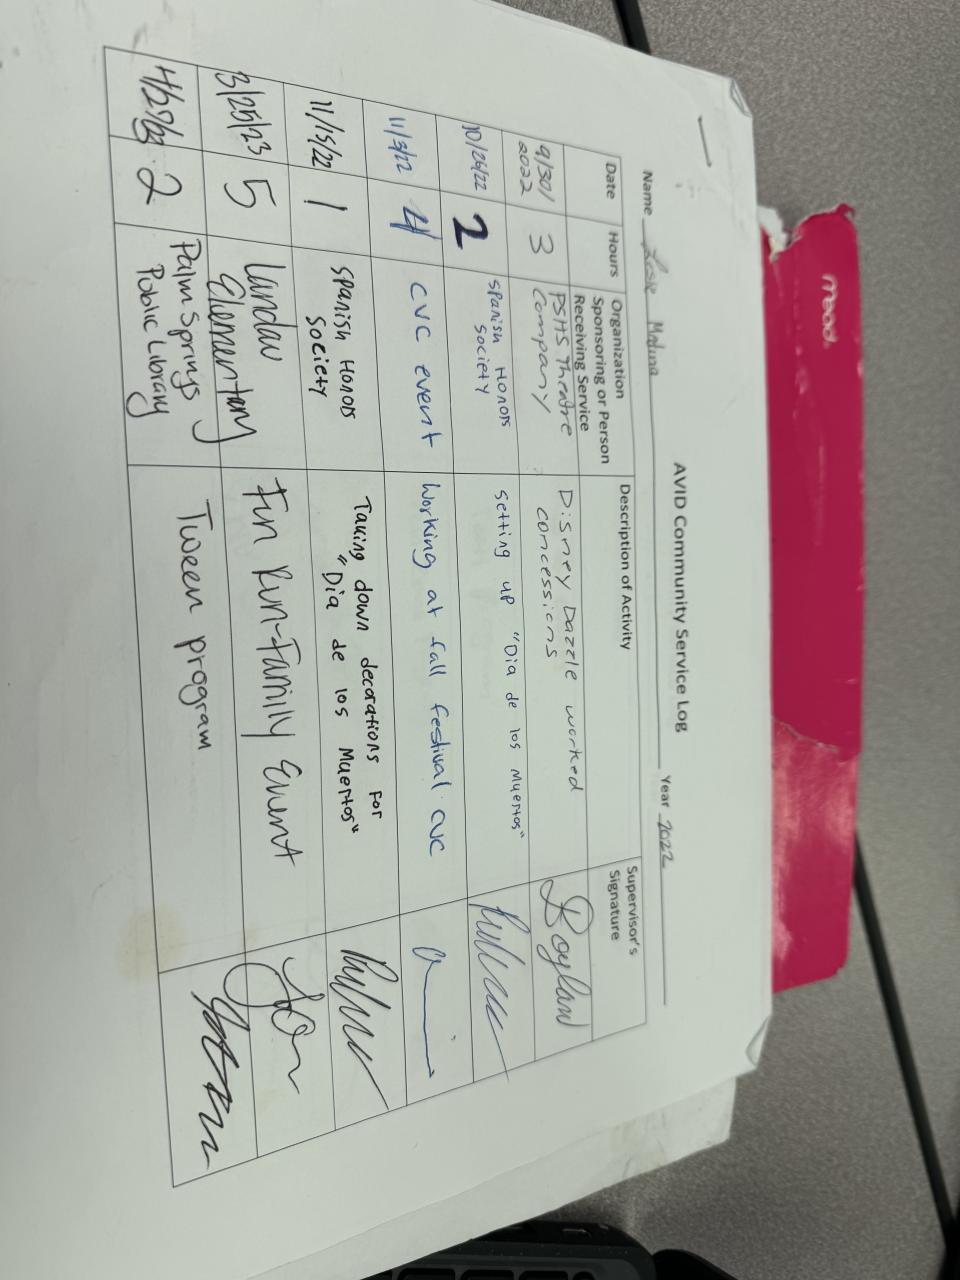 mead
AVID Community Service Log
Name Medina Year 2022
Date Hours Organization Sponsoring or Person Receiving Service Description of Activity Supervisor's Signature
9/30/2022 3 PSHS Theatre Company Disney Dazzle worked concessions
10/26/22 2 Spanish Honors Society setting up "Dia de los Muertos"
11/3/22 4 CVC event Working at fall festival CVC
11/15/22 1 Spanish Honors Society Taking down decorations for "Dia de los Muertos"
3/25/23 5 Landau Elementary Fun Run-Family Event
2 Palm Springs Public Library Tween program